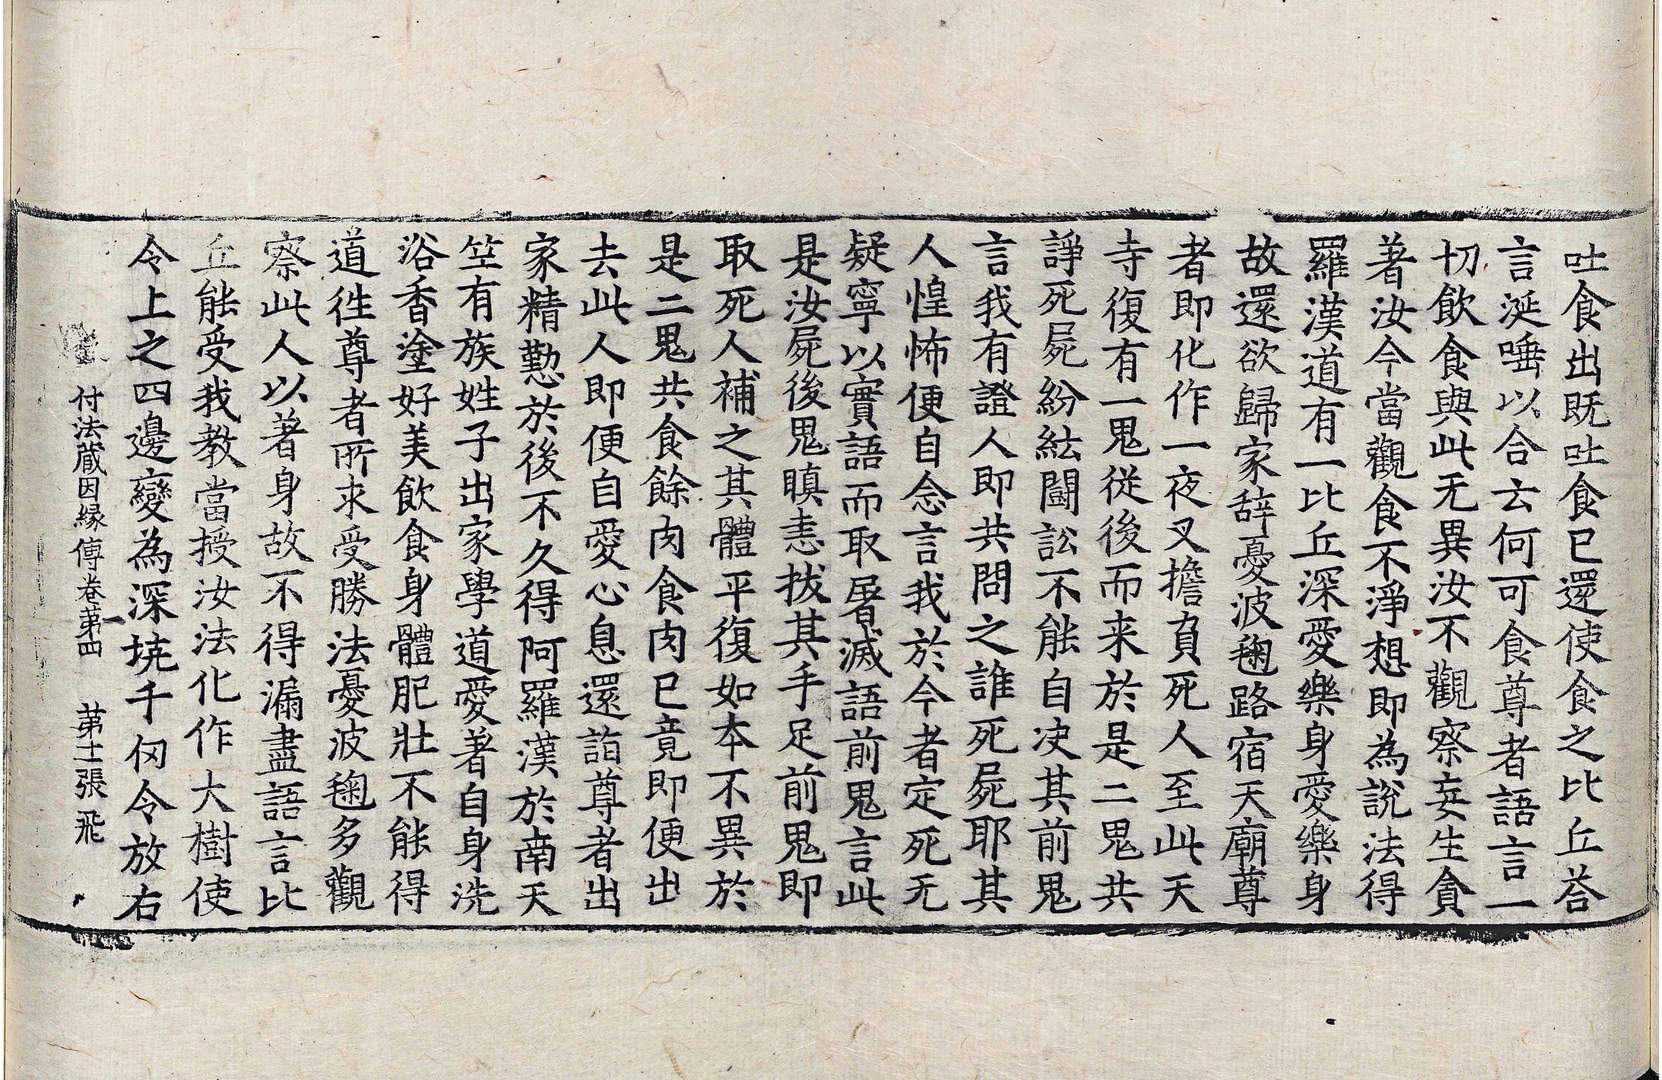 吐食出既吐食已還使食之比丘荅
言涎唾以合云何可食尊者語言一
切飲食與此无異汝不觀察妄生貪
著汝今當觀食不淨想即為說法得
羅漢道有一比丘深愛樂身愛樂身
故還欲歸家辞憂波毱路宿天廟尊
者即化作一夜叉擔負死人至此天
寺復有一鬼從後而来於是二鬼共
諍死屍紛紜鬪訟不能自决其前鬼
言我有證人即共問之誰死屍耶其
人惶怖便自念言我於今者定死无
疑寧以實語而取屠滅語前鬼言此
是汝屍後鬼瞋恚拔其手足前鬼即
取死人補之其體平復如本不異於
是二鬼共食餘肉食肉已竟即便出
去此人即便自愛心息還詣尊者出
家精懃於後不久得阿羅漢於南天
竺有族姓子出家學道愛著自身洗
浴香塗好美飲食身體肥壯不能得
道徃尊者所求受勝法憂波毱多觀
察此人以著身故不得漏盡語言比
丘能受我教當授汝法化作大樹使
令上之四邊變為深坑千仞令放右
付法藏因縁傳卷苐四 苐十一張 飛